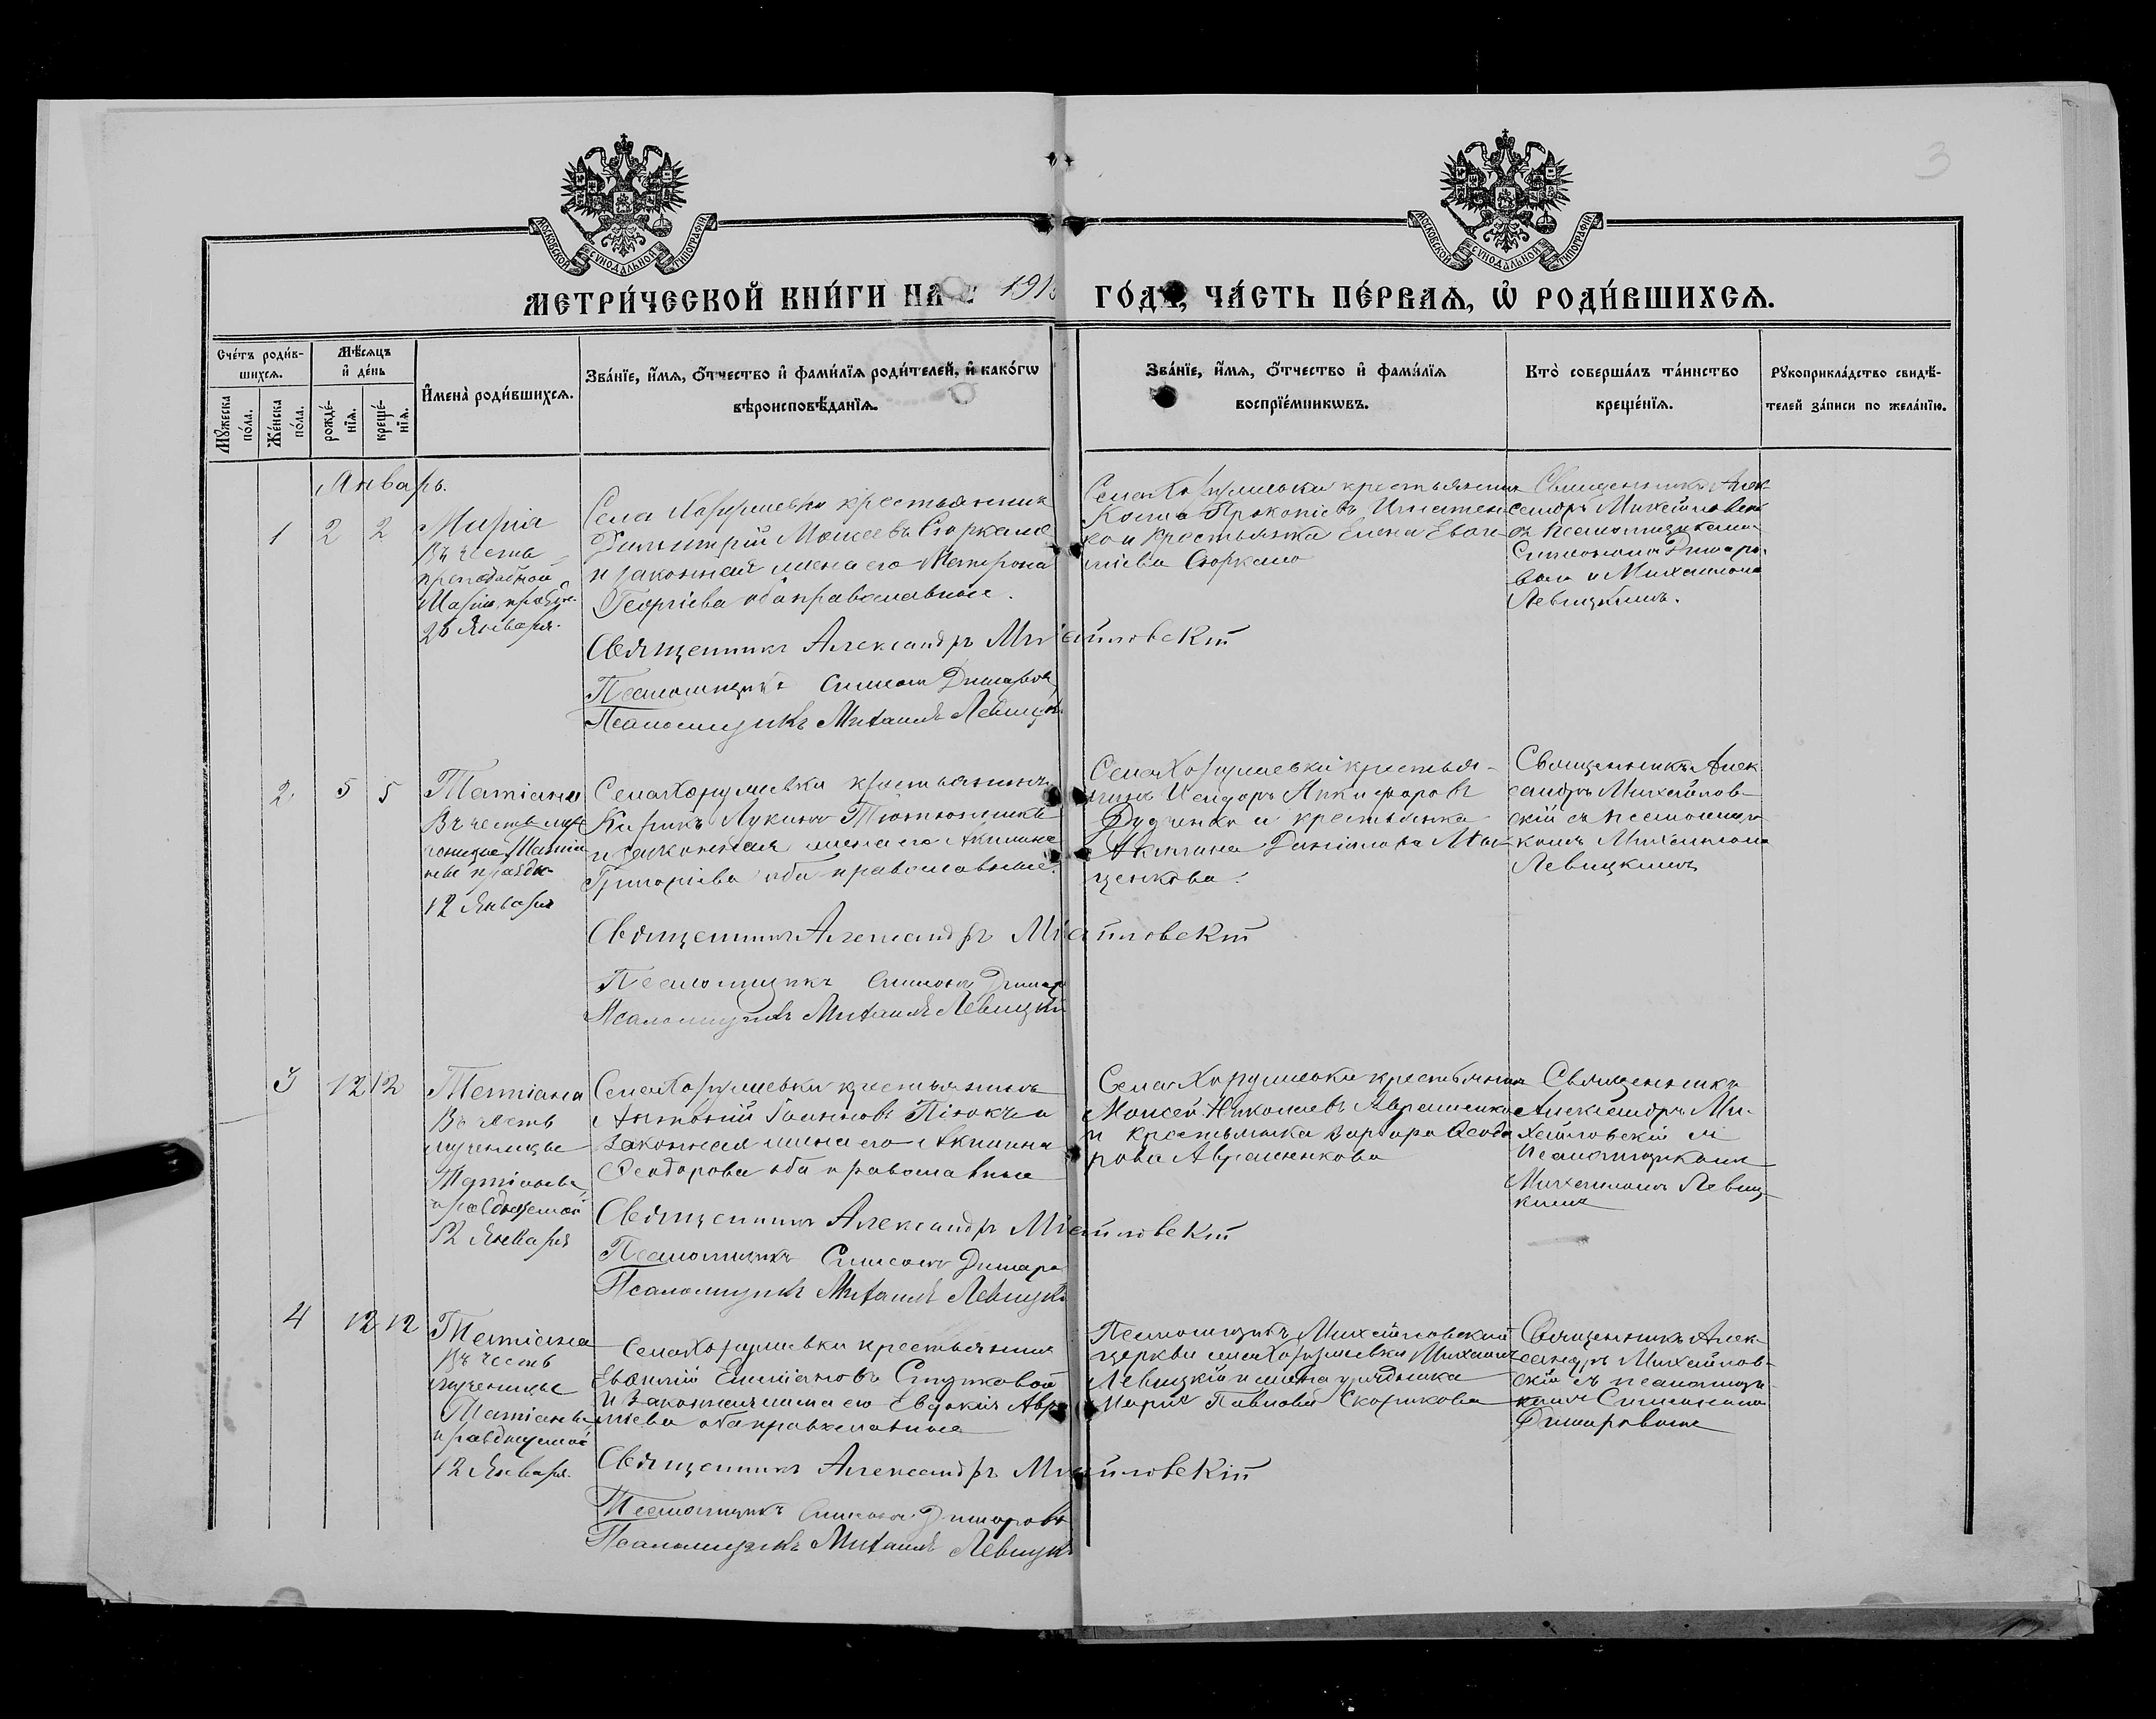 3
МОСКОВСКОЙ СУНОДАЛЬНОЙ ТИПОГРАФІИ
МОСКОВСКОЙ СУНОДАЛЬНОЙ ТИПОГРАФІИ
МЕТРИ́ЧЕСКОЙ КНИ́ГИ НА 191
ГО́ДЪ, ЧА́СТЬ ПЕ́РВАЯ, Ѡ҆ РОДИ́ВШИХСЯ.
Сче́тъ роди́в-
шихся.
Мꙋ́жеска по́ла.
Же́нска по́ла.
Мѣ́сяцъ
и҆ де́нь
рожде́-
нїя.
креще́-
нїя.
И҆мена̀ роди́вшихся.
Зва́нїе, и҆́мя, ѻ҆́тчество и҆ фами́лїя роди́телей, и҆ како́гѡ
вѣроисповѣ́данїя.
Зва́нїе, и҆́мя, ѻ҆́тчество и҆ фами́лїя
воспрїе́мникѡвъ.
Кто̀ соверша́лъ та́инство
креще́нїя.
Рꙋкоприкла́дство свидѣ́-
телей за́писи по жела́нїю.
Январь.
1 2 2
Марія
Въ честь
преподобной
Маріи, праздн.
26 Января.
Села крестьянинъ
Димитрій Моисеевъ
и законная жена его Матрона
Георгіева оба православные.
Священникъ Александръ Михайловскій
Псаломщикъ Симеонъ Димаровъ
Псаломщикъ Михаилъ Левицкій
Села крестьянинъ
Козма Прокопіевъ
ко и крестьянка Елена
Священникъ Алек-
сандръ Михайловскій
съ псаломщиками
Симеономъ Димаро-
вымъ и Михаиломъ
Левицкимъ.
2 5 5
Татіана
Въ честь муче-
ницы Татіа-
ны праздн.
12 Января
Села крестьянинъ
Лукинъ
и законная жена его Акилина
Григоріева оба православные.
Священникъ Александръ Михайловскій
Псаломщикъ Симеонъ Димар
Псаломщикъ Михаилъ Левицкій
Села крестья-
нинъ Никифоровъ
и крестьянка
Акилина Даніилова
Священникъ Алек-
сандръ Михайлов-
скій съ псаломщи-
комъ Михаиломъ
Левицкимъ
3 12 12
Татіана
Въ честь
мученицы
Татіаны,
празднуемой
12 Января
Села крестьянинъ
Антоній Іоанновъ и
законная жена его Акилина
Ѳеодорова оба православные
Священникъ Александръ Михайловскій
Псаломщикъ Симеонъ Димаро
Псаломщикъ Михаилъ Левицкі
Села крестьянинъ
Моисей Николаевъ Авраменко
и крестьянка Варвара Ѳеодо
рова Авраменкова
Священникъ
Александръ Ми-
хайловскій съ
псаломщикомъ
Михаиломъ Левиц-
кимъ
4 12 12
Татіана
Въ честь
мученицы
Татіаны
празднуемой
12 Января.
Села крестьянинъ
Емиліановъ
и законная жена его Евдокія
оба православные
Священникъ Александръ Михайловскій
Псаломщикъ Симеонъ Димаровъ
Псаломщикъ Михаилъ Левицкі
Псаломщикъ Михайловской
церкви села Михаилъ
Левицкій и жена урядника
Марія Павлова Скорикова
Священникъ Алек-
сандръ Михайлов-
скій съ псаломщи-
комъ Симеономъ
Димаровымъ